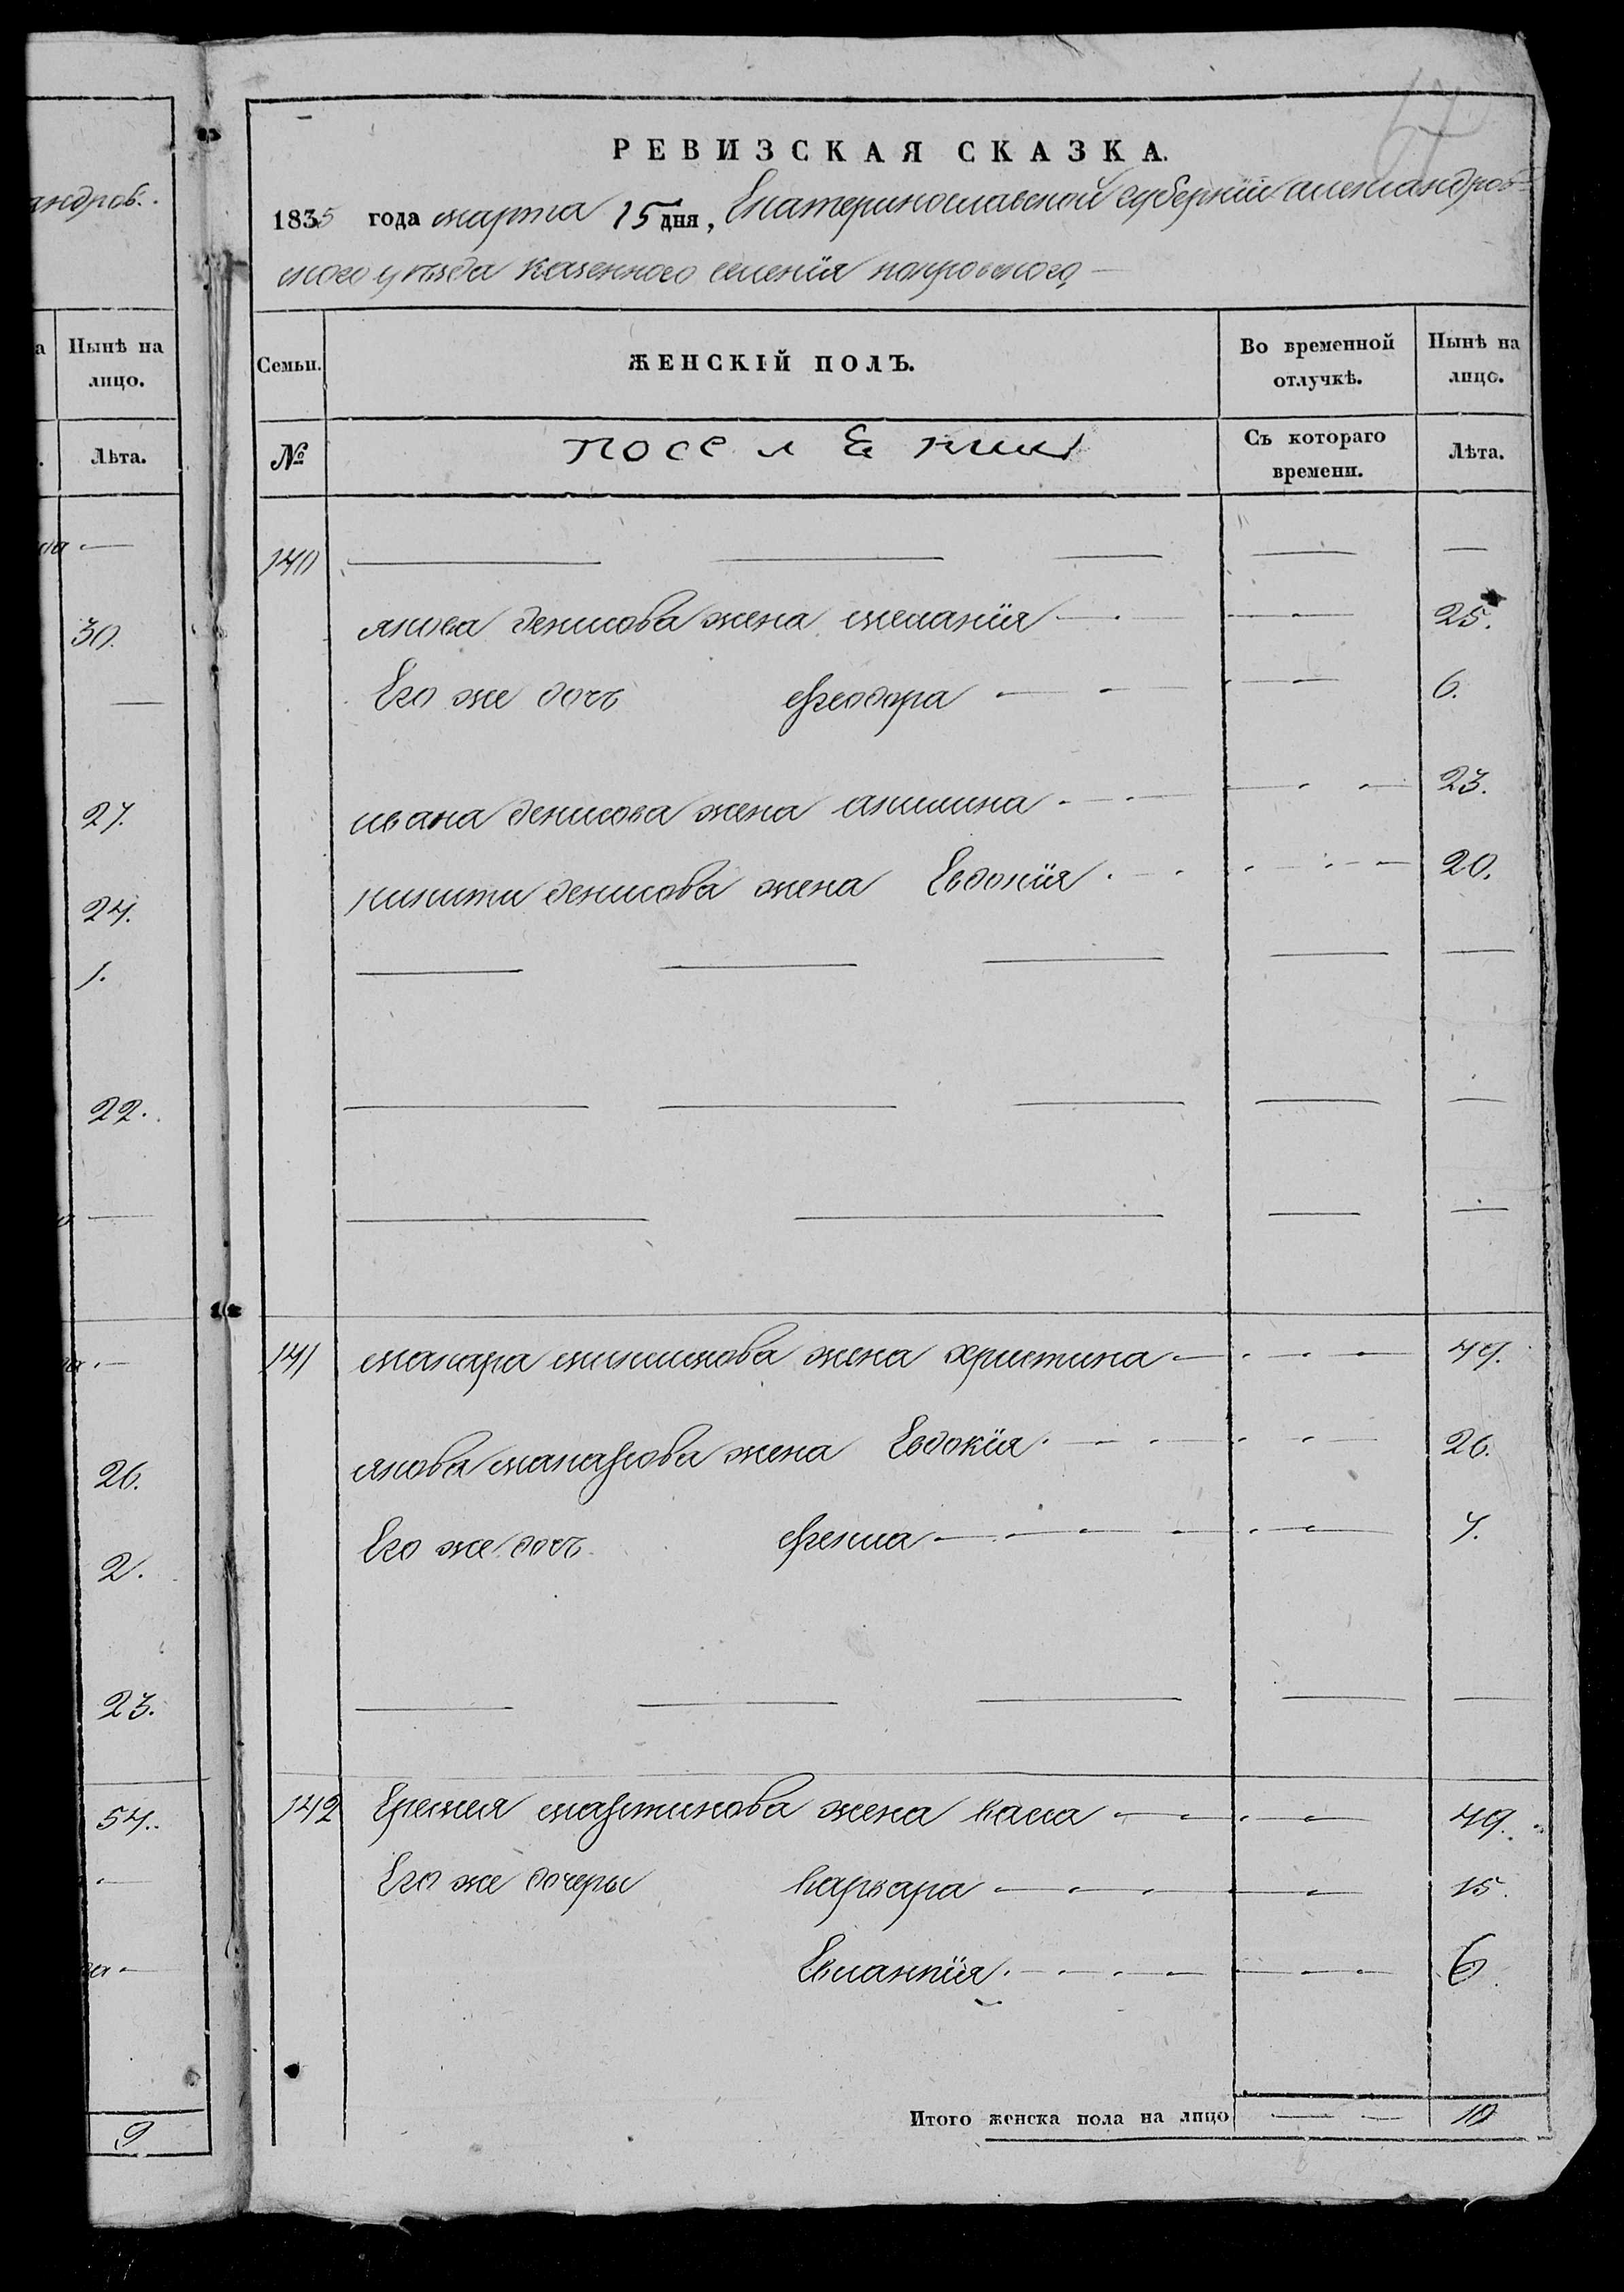 андров.
Нынѣ на
лицо.
Лѣта.
30.
27.
24.
1.
22.
26.
2.
23.
54.
9
РЕВИЗСКАЯ СКАЗКА.
1835 года марта 15 дня, Екатеринославской губерніи александров-
ского уѣзда казенного селенія покровского
Семьи. ЖЕНСКІЙ ПОЛЪ. Во временной отлучкѣ. Нынѣ на лицо.
№ поселЕнии Съ котораго времени. Лѣта.
140
якова денисова жена мелания 25.
Его же дочь феодора 6.
ивана денисова жена акилина 23.
никити денисова жена Евдокія 20.
141 макара жена христина 49.
якова макарова жена Евдокія 26.
Его же дочь фекла
142 Еремея мартинова жена 49.
Его же дочеры варвара 15.
Евлампія 6
Итого женска пола на лицо 10